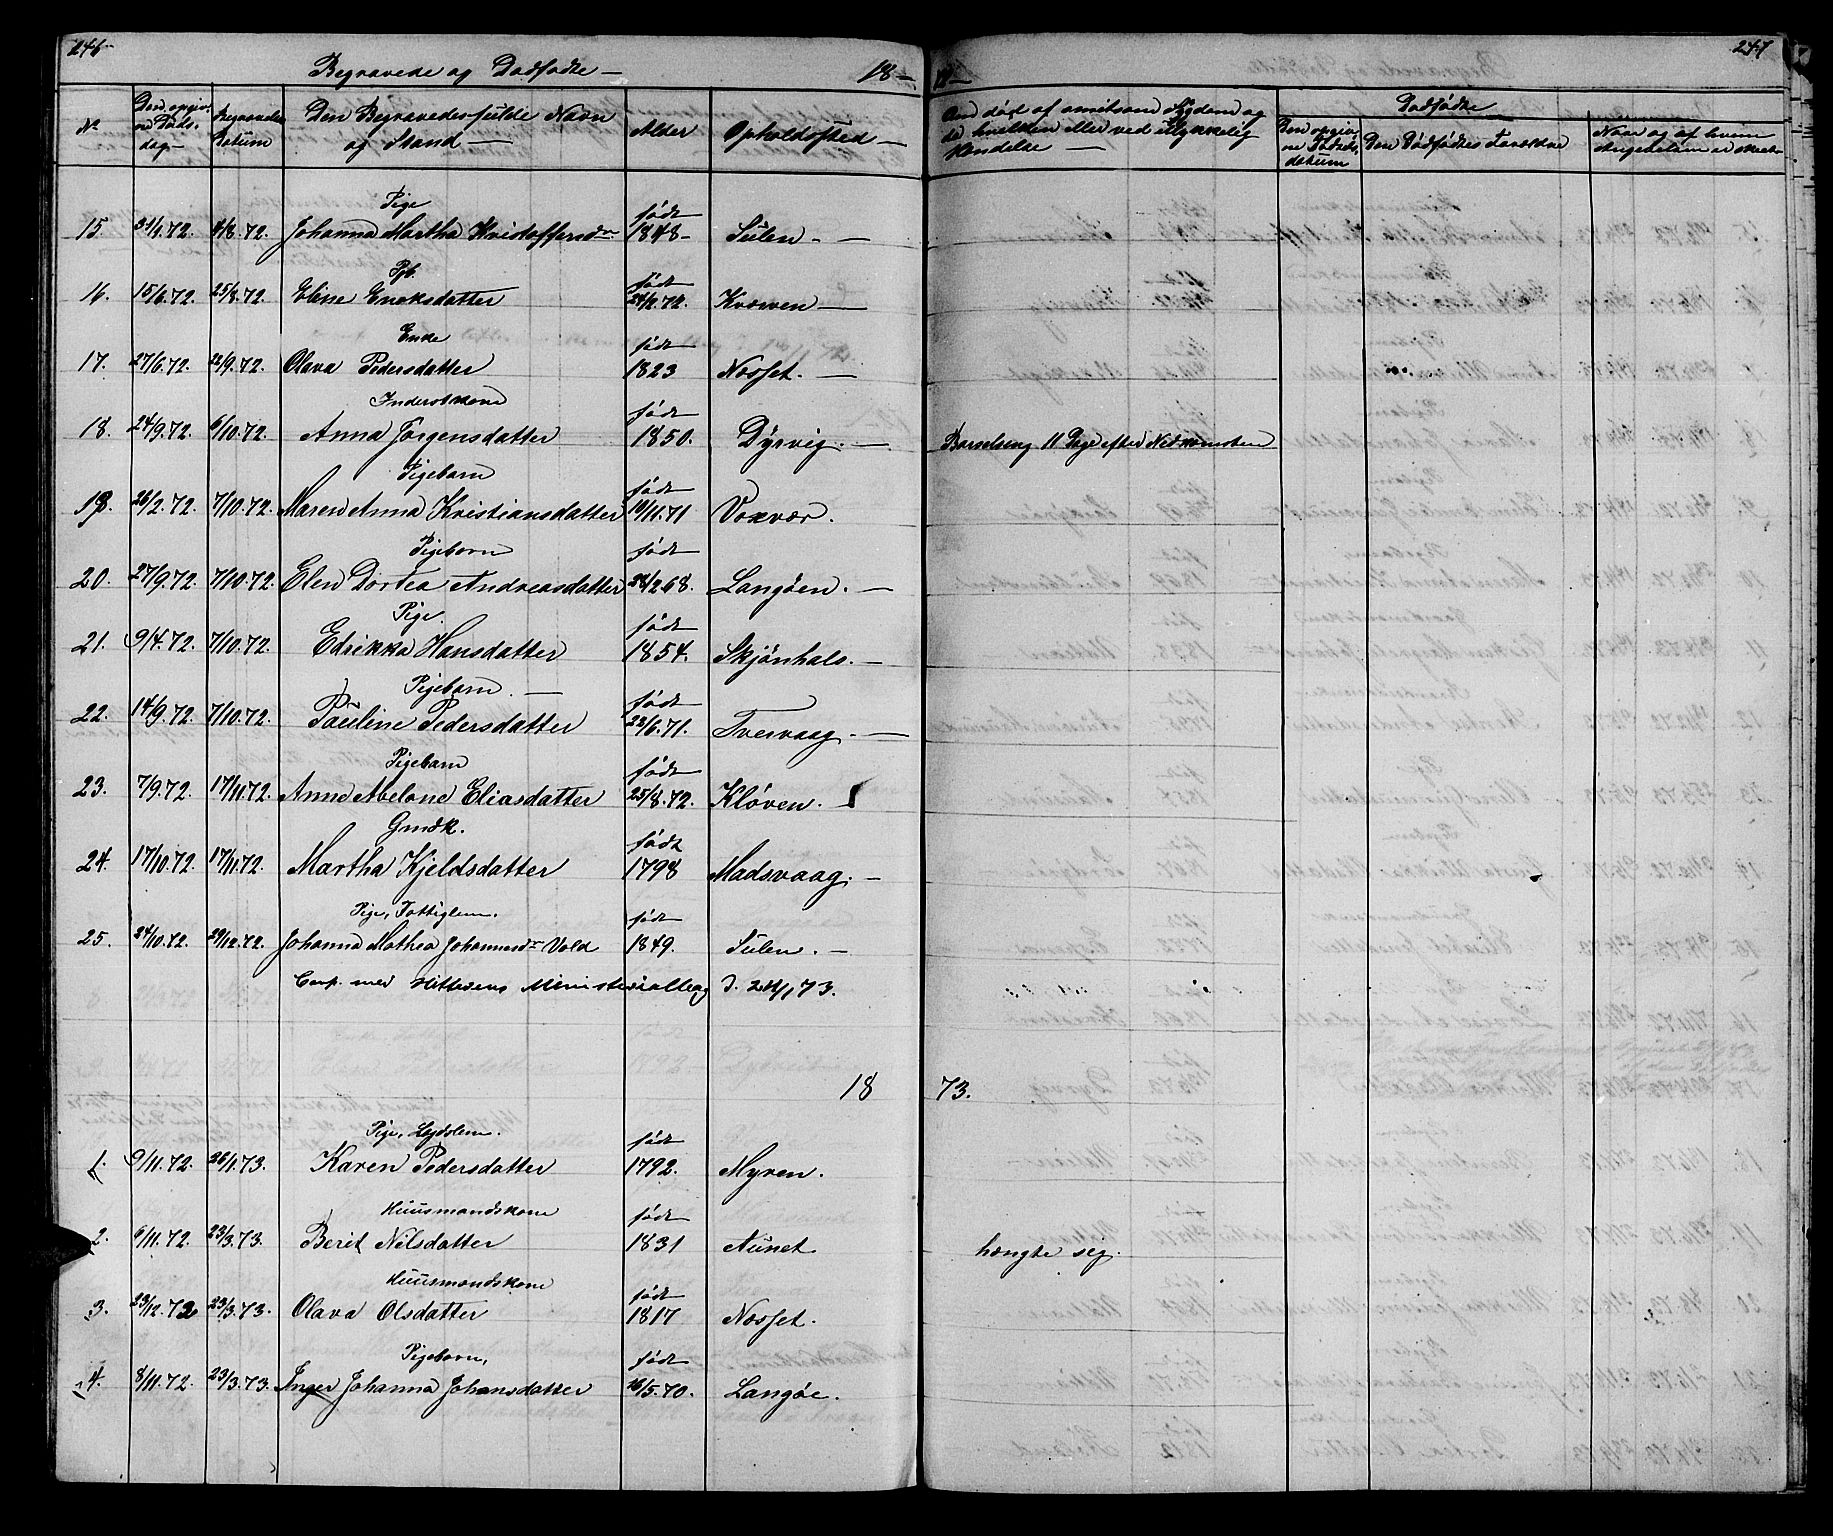 246
Begravede og Dødfødte —
18 —
No
Den opgivne Dødsdag —
Begravelses Datum
Den Begravedes fulde Navn og Stand —
Alder
Opholdssted —
Pige
15. 31/1.72. 4/8.72. Johanna Martha Kristoffersdr født 1848 — Sulen. —
Pgb.
16. 15/6.72. 25/8.72. Eline Enoksdatter født 24/2.72. Kværven —
Enke
17. 27/6.72. 22/9.72. Olava Pedersdatter født 1823 Nosset. —
Inderstkone
18. 24/9.72. 6/10.72. Anna Jørgensdatter født 1850. Dyrvig. —
Pigebarn
19. 26/2.72. 7/10.72. Maren Anna Kristiansdatter født 10/11.71 Voxvær.
Pigebarn
20. 27/9.72. 7/10.72. Elen Dortea Andreasdatter født 28/2.68. Langøen. —
Pige.
21. 9/4.72. 7/10.72. Edrikka Hansdatter født 1854. Skjønhals. —
Pigebarn. —
22. 14/9.72. 7/10.72. Pauline Pedersdatter født 22/6.71. Tvervaag. —
Pigebarn
23. 7/9.72. 17/11.72. Anne Abelone Eliasdatter født 25/8.72. Kløven.
Gmdk.
24. 17/10.72. 17/11.72. Martha Kjeldsdatter født 1798 Madsvaag. —
Pige, Fattiglem.
25. 24/10.72. 29/12.72. Johanna Mathea Johannesdr Vold født 1849. Sulen. —
Conf. med Hitterens Ministerialbog d. 24/1 73.
18
Pige, Lægdslem.
1. 9/11.72. 26/1.73. Karen Pedersdatter født 1792. Myren.
Huusmandskone
2. 6/11.72. 23/3.73. Berit Nilsdatter født 1831 Aunet
Huusmandskone
3. 23/12.72 23/3.73. Olava Olsdatter født 1817 Nosset.
Pigebarn,
4. 8/11.72. 23/3.73. Inger Johanna Johansdatter født 16/5.70. Langøe.
247
Om død af smitsom Sygdom og da hvilken eller ved ulykkelig Hendelse —
Dødfødte
Den opgivne Fødselsdatum
Den Dødfødtes Forældre
Naar og af hvem Angivelsen er skeet
Barselseng 11 Dage efter Nedkomsten
73.
hængte sig.